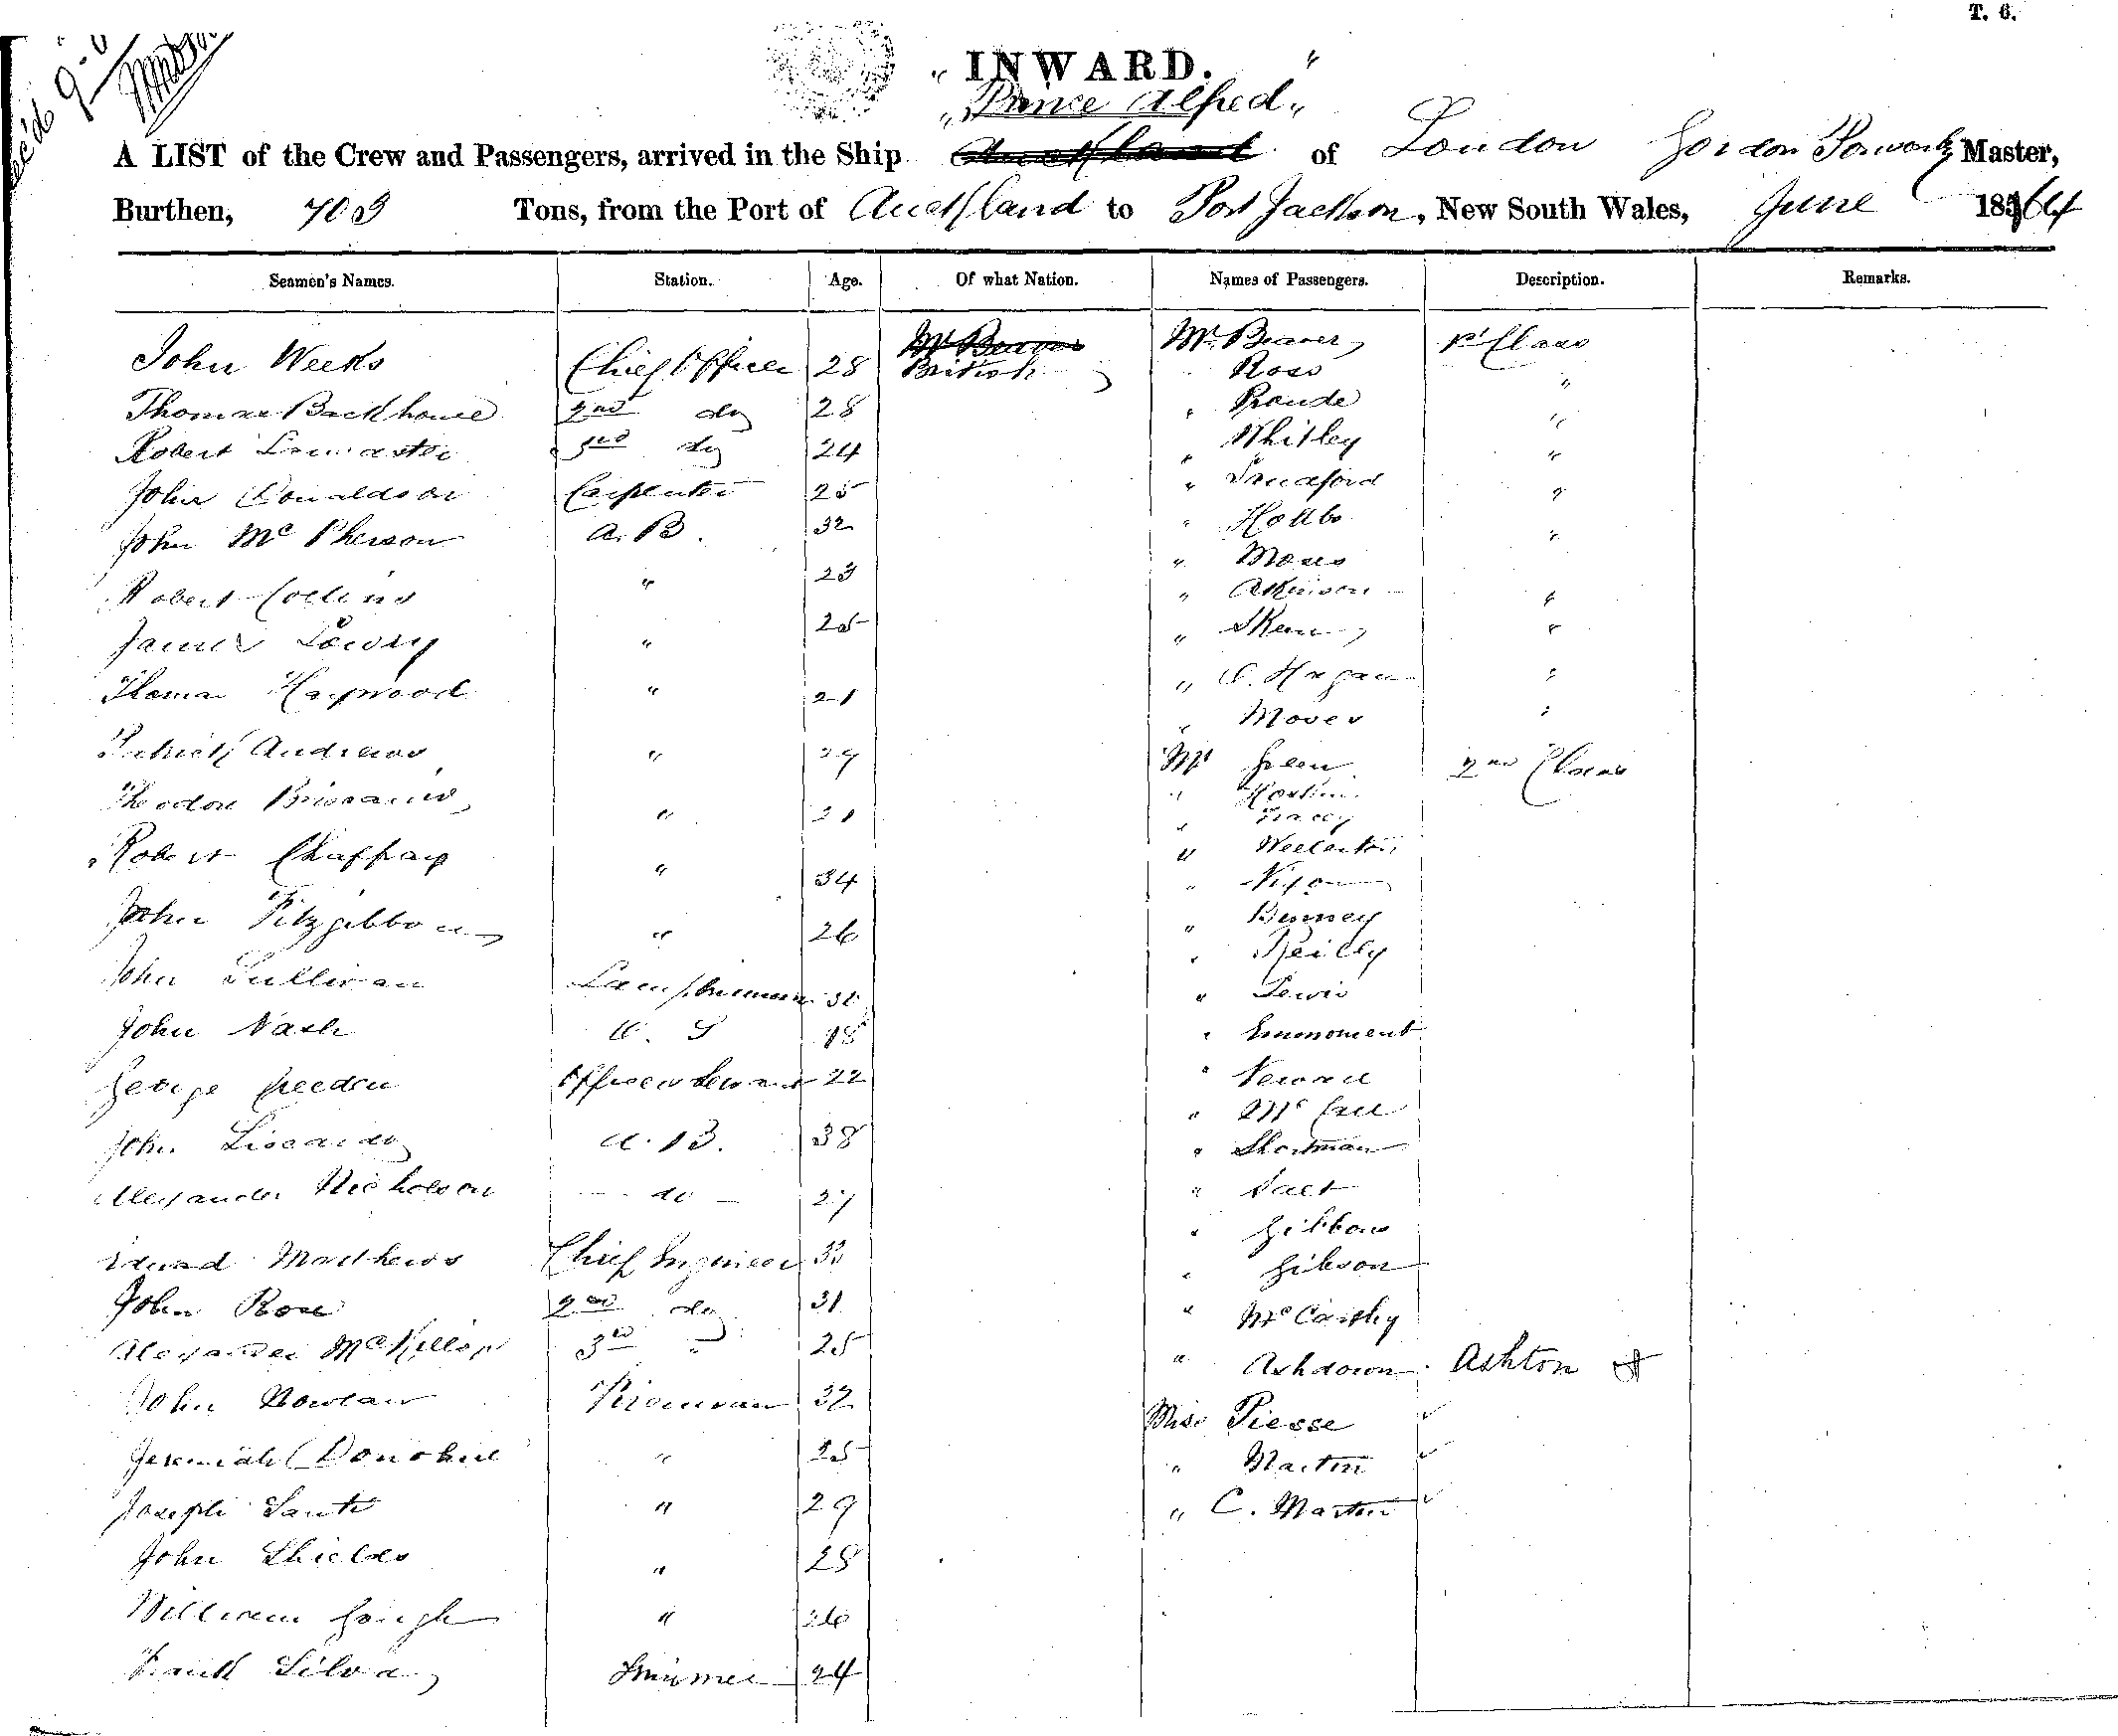 T. 6.
INWARD.
"Prince Alfred"
A LIST of the Crew and Passengers, arrived in the Ship Auckland of London Gordon Master,
Burthen, 703 Tons, from the Port of Auckland to Port Jackson, New South Wales, June 1864
Seamen's Names. Station. Age. Of what Nation. Names of Passengers. Description. Remarks.
John Weeks Chief Officer 28 British Mr. Beaver 1st Class
" Ross "
Thomas Backhouse 2nd do 28 " Proude "
Robert Lancaster 3rd do 24 " Whitley "
John Donaldson Carpenter 25 " Sandford "
John McPherson A.B. 32 " Holtbo
" Moses "
Robert Collins " 23 " Atkinson "
James Lowry " 25 " Skeen "
Thomas Haywood " 21 " O. Hagan "
" Mover "
Patrick Andrews " 29 Mr Green 2nd Class
Theodore " 31 "
" Tracey
Robert Chaffray " 34 "
" Nixon
John Fitzgibbon " 26 " Binney
" Reilly
John Sullivan Lamptrimmer 31 " Lewis
John Nash O.S 18 " Emmoment
George Creeden Officers Servant 22 "
" McCall
John A.B. 38 " Shortman
Alexander Nicholson do 27 " Salt
" Gibbons
Edward Matthews Chief Engineer 33 " Gibson
John Rose 2nd do 31 " McCarthy
Alexander McKillop 3rd " 25 " Ashdown Ashton
John Nowlan Fireman 32 Miss Piesse
Jeremiah Donohue " 25 " Martin
Joseph " 29 " C. Martin
John Shields " 28
William Gough " 26
Frank Silva Trimmer 24